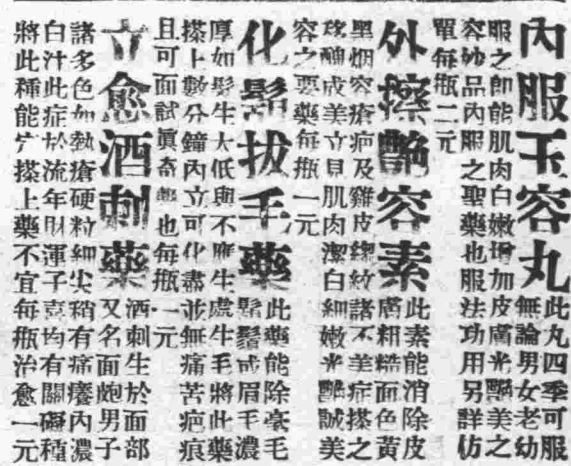 內服玉容丸
此丸四季可服
無論男女老幼
服之卽能肌肉白嫩增加皮膚光艷美之
容妙品內服之聖藥也服法功用另詳仿
單每瓶二元
外搽艷容素
此素能消除皮
膚粗糙面色黃
黑烟容瘡疤及雞皮縐紋諸不美症搽之
改醜成美立見肌肉潔白細嫩光艷誠美
容之要藥每瓶一元
化鬍拔毛藥
此藥能除毫毛
鬍鬚或眉毛濃
厚如髮生太低與不應生處生毛將此藥
搽上數分鐘內立可化盡並無痛苦疤痕
且可面試眞奇也每瓶一元
立愈酒刺藥
酒刺生於面部
又名面皰男子
諸多色如熱瘡硬粒細尖稍有痛癢內濃
白汁此症於流年財運子喜均有關礙種
將此種能搽上藥不宜每瓶治愈一元